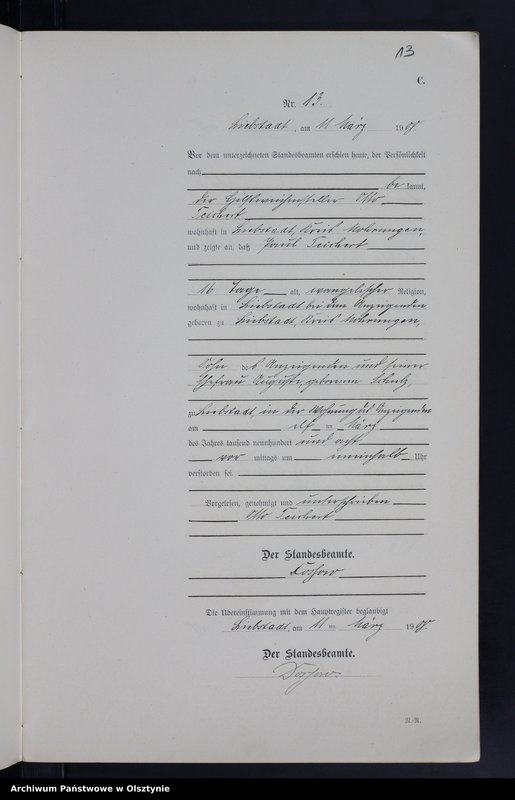 13
C.
Nr. 13.
Liebstadt, am 11 März 1908.
Vor dem unterzeichneten Standesbeamten erschien heute, der Persönlichkeit
nach
be kannt,
der Hilfsweichensteller Otto
Teichert
wohnhaft in Liebstadt, Kreis Mohrungen
und zeigte an, daß Paul Teichert
16 Tage alt, evangelischer Religion,
wohnhaft in Liebstadt bei dem Anzeigenden
geboren zu Liebstadt, Kreis Mohrungen,
Sohn des Anzeigenden und seiner
Ehefrau Auguste, geborenen Schulz,
zu Liebstadt, in der Wohnung des Anzeigenden
am elf ten März
des Jahres tausend neunhundert und acht
vor mittags um Uhr
verstorben sei.
Vorgelesen, genehmigt und unterschrieben
Otto Teichert
Der Standesbeamte.
Die Übereinstimmung mit dem Hauptregister beglaubigt
Liebstadt, am 11 ten März 1908.
Der Standesbeamte.
Archiwum Państwowe w Olsztynie